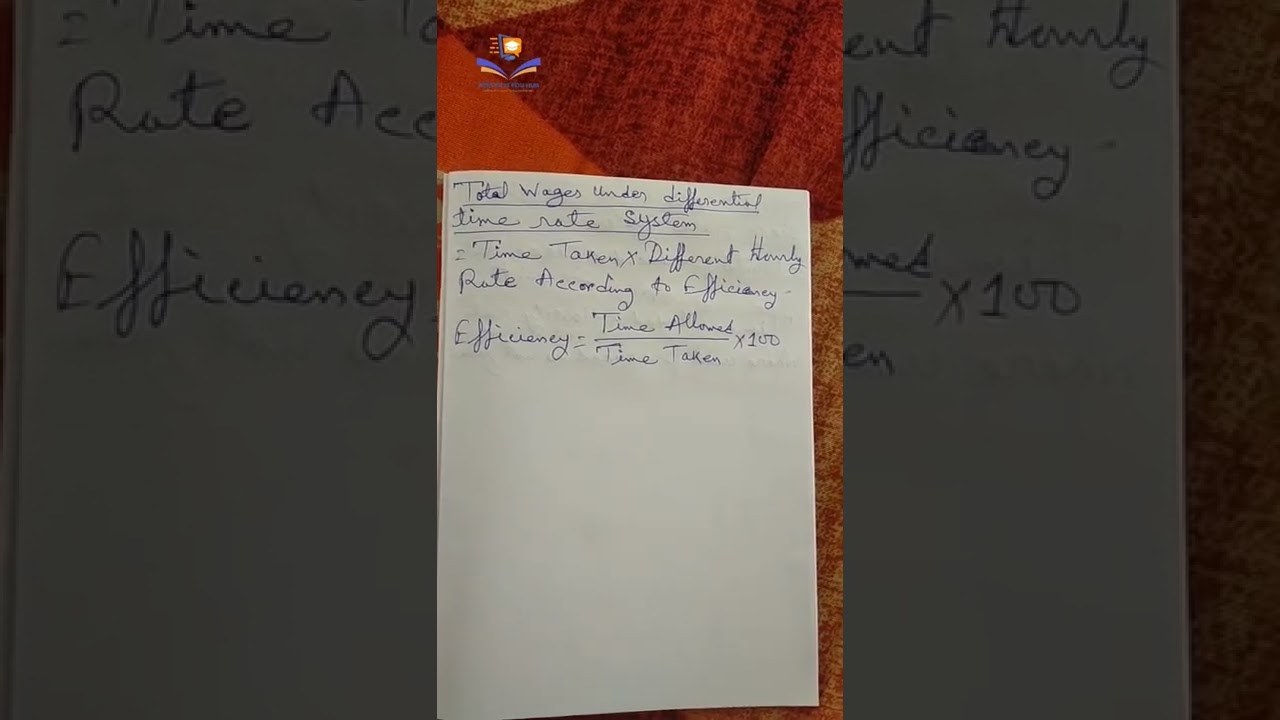 Total Wages under differential
time rate System
= Time Taken × Different Hourly
Rate According to Efficiency.
Efficiency = Time Allowed
Time Taken × 100